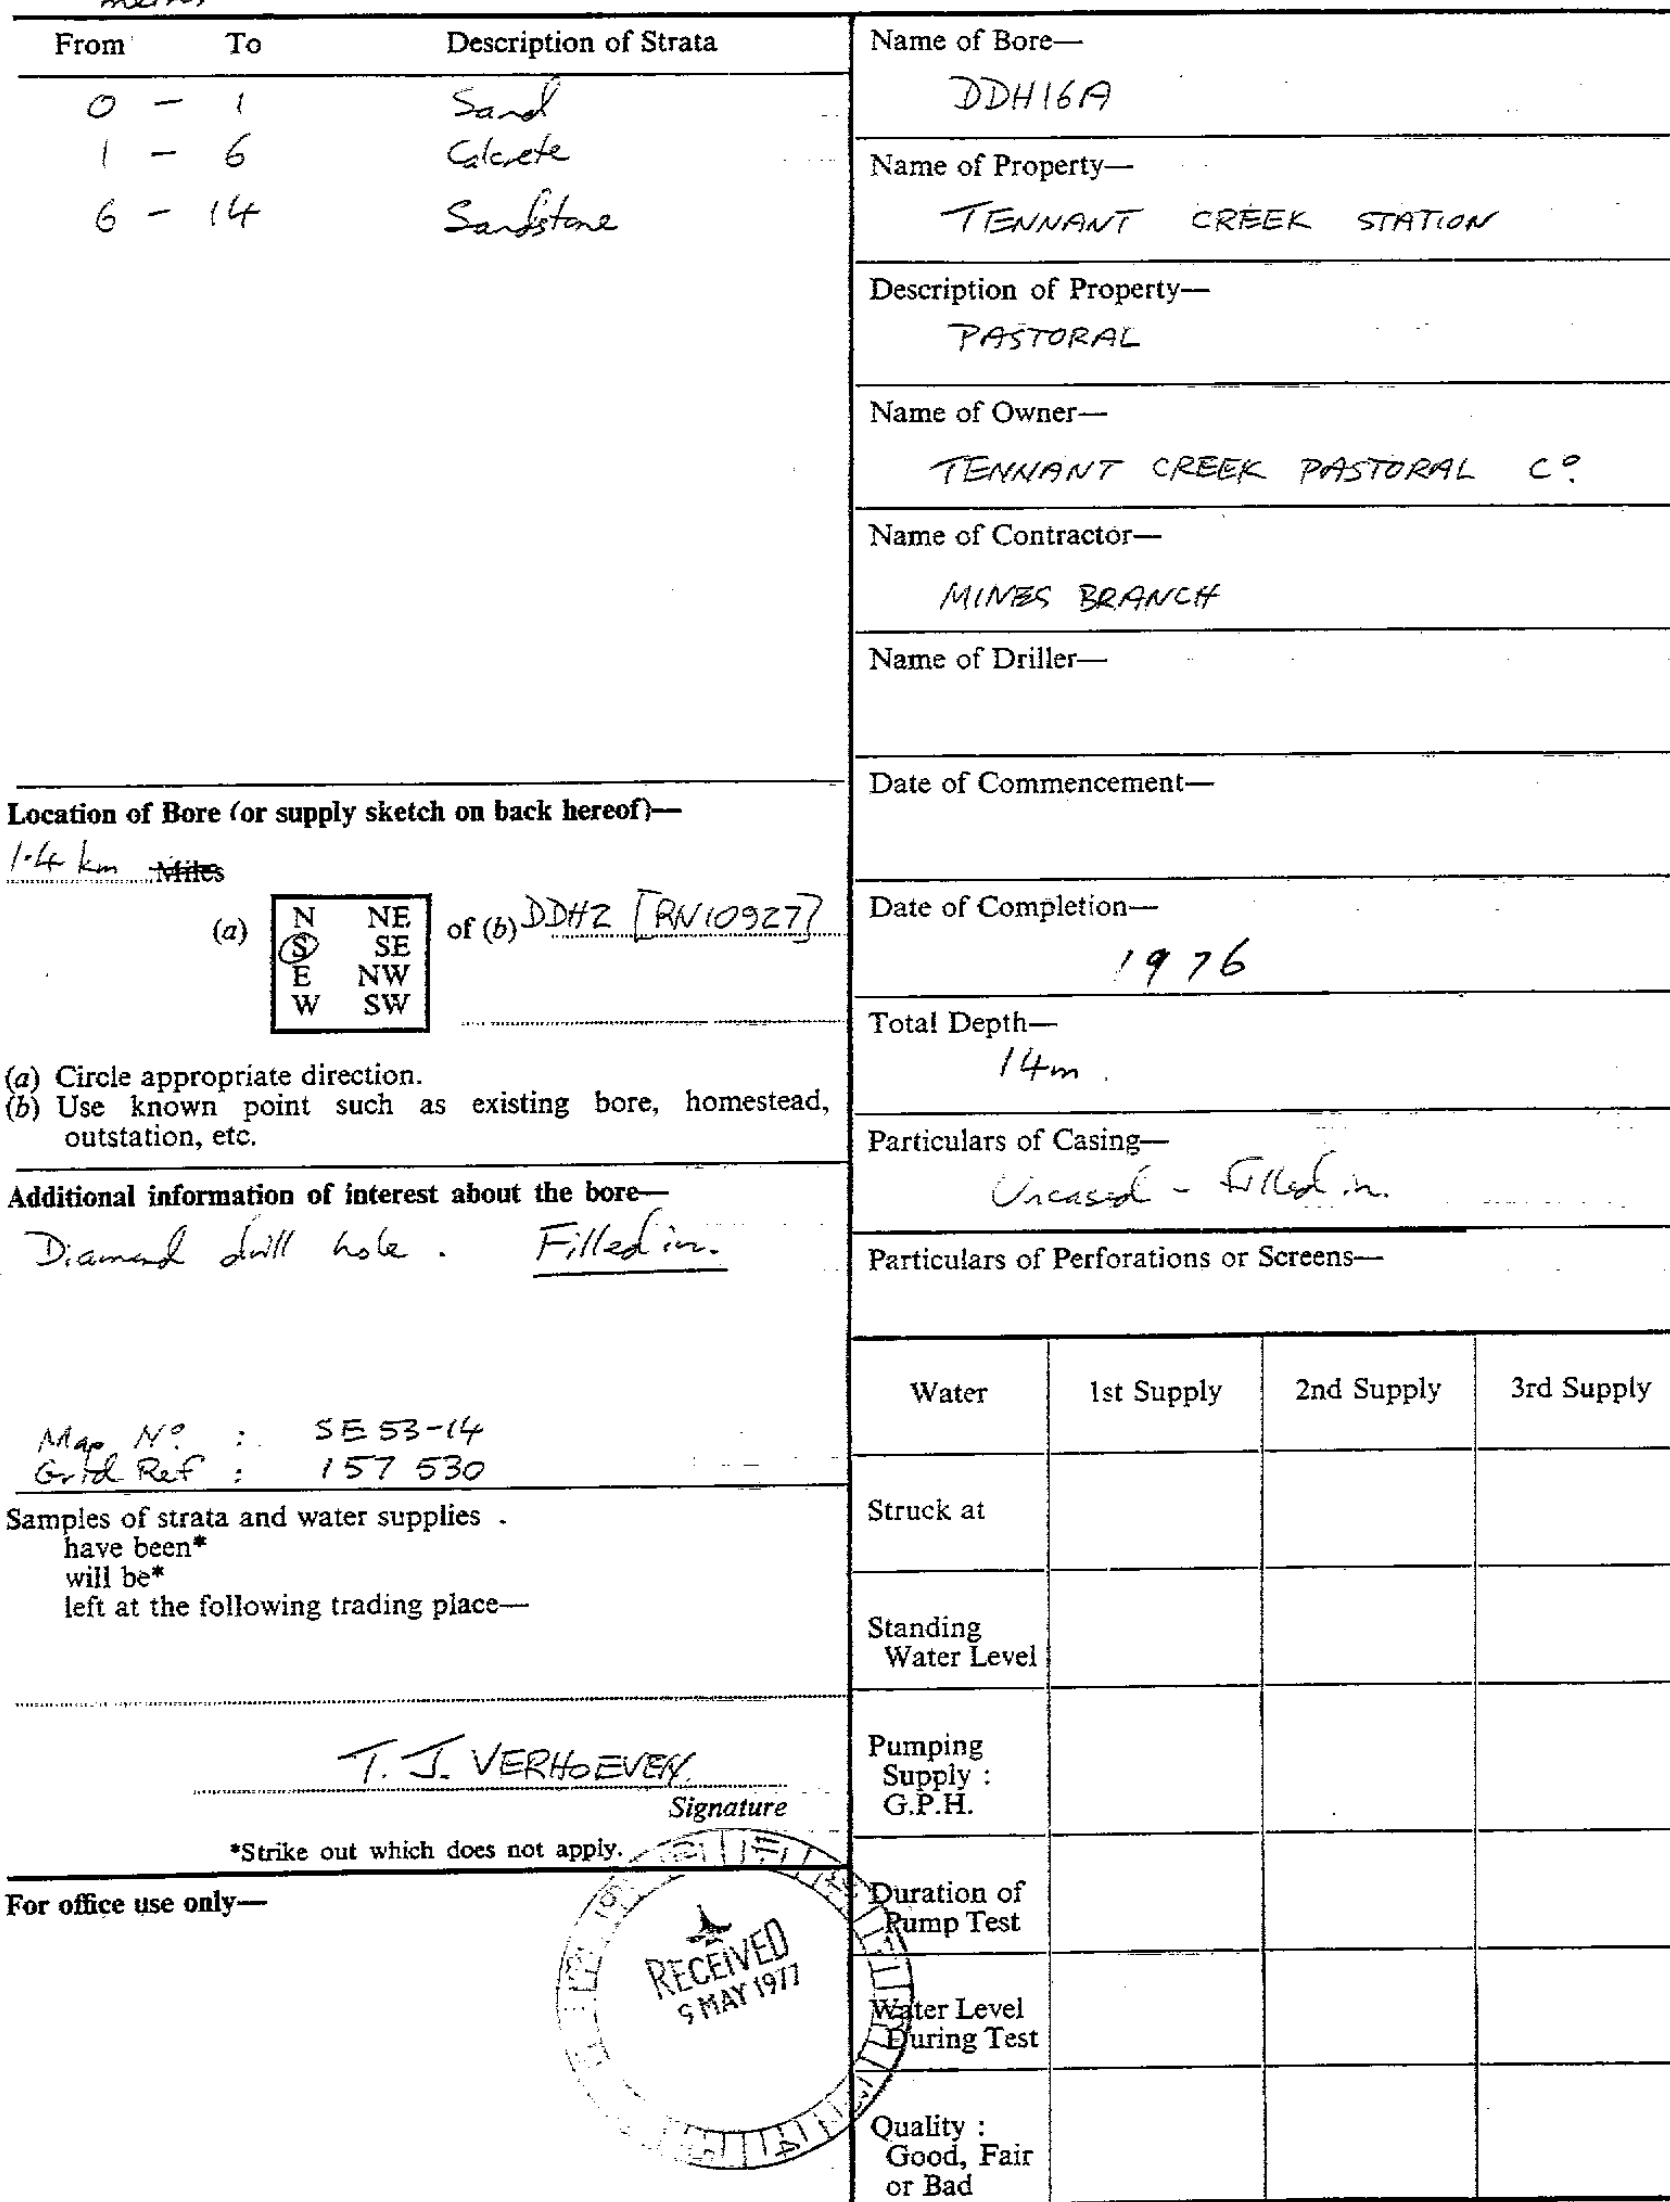 From To Description of Strata
0 - 1 Sand
1 - 6 Calcrete
6 - 14 Sandstone
Location of Bore (or supply sketch on back hereof)—
1.4 km Miles
(a) N NE of (b) DDH2 [RN10927]
S SE
E NW
W SW
(a) Circle appropriate direction.
(b) Use known point such as existing bore, homestead,
outstation, etc.
Additional information of interest about the bore—
Diamond drill hole. Filled in.
Map No : SE 53-14
Grid Ref : 157 530
Samples of strata and water supplies .
have been*
will be*
left at the following trading place—
T. J. VERHOEVEN.
Signature
*Strike out which does not apply.
For office use only—
RECEIVED
9 MAY 1977
Name of Bore—
DDH16A
Name of Property—
TENNANT CREEK STATION
Description of Property—
PASTORAL
Name of Owner—
TENNANT CREEK PASTORAL Co.
Name of Contractor—
MINES BRANCH
Name of Driller—
Date of Commencement—
Date of Completion—
1976
Total Depth—
14m.
Particulars of Casing—
Uncased - filled in.
Particulars of Perforations or Screens—
Water 1st Supply 2nd Supply 3rd Supply
Struck at
Standing
Water Level
Pumping
Supply :
G.P.H.
Duration of
Pump Test
Water Level
During Test
Quality :
Good, Fair
or Bad